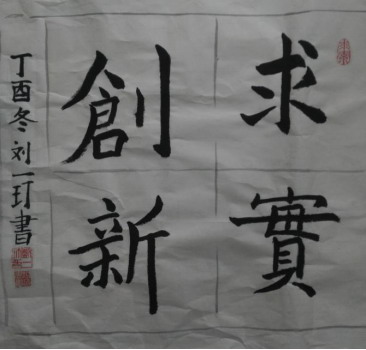 求實
創新
丁酉冬刘一玎書